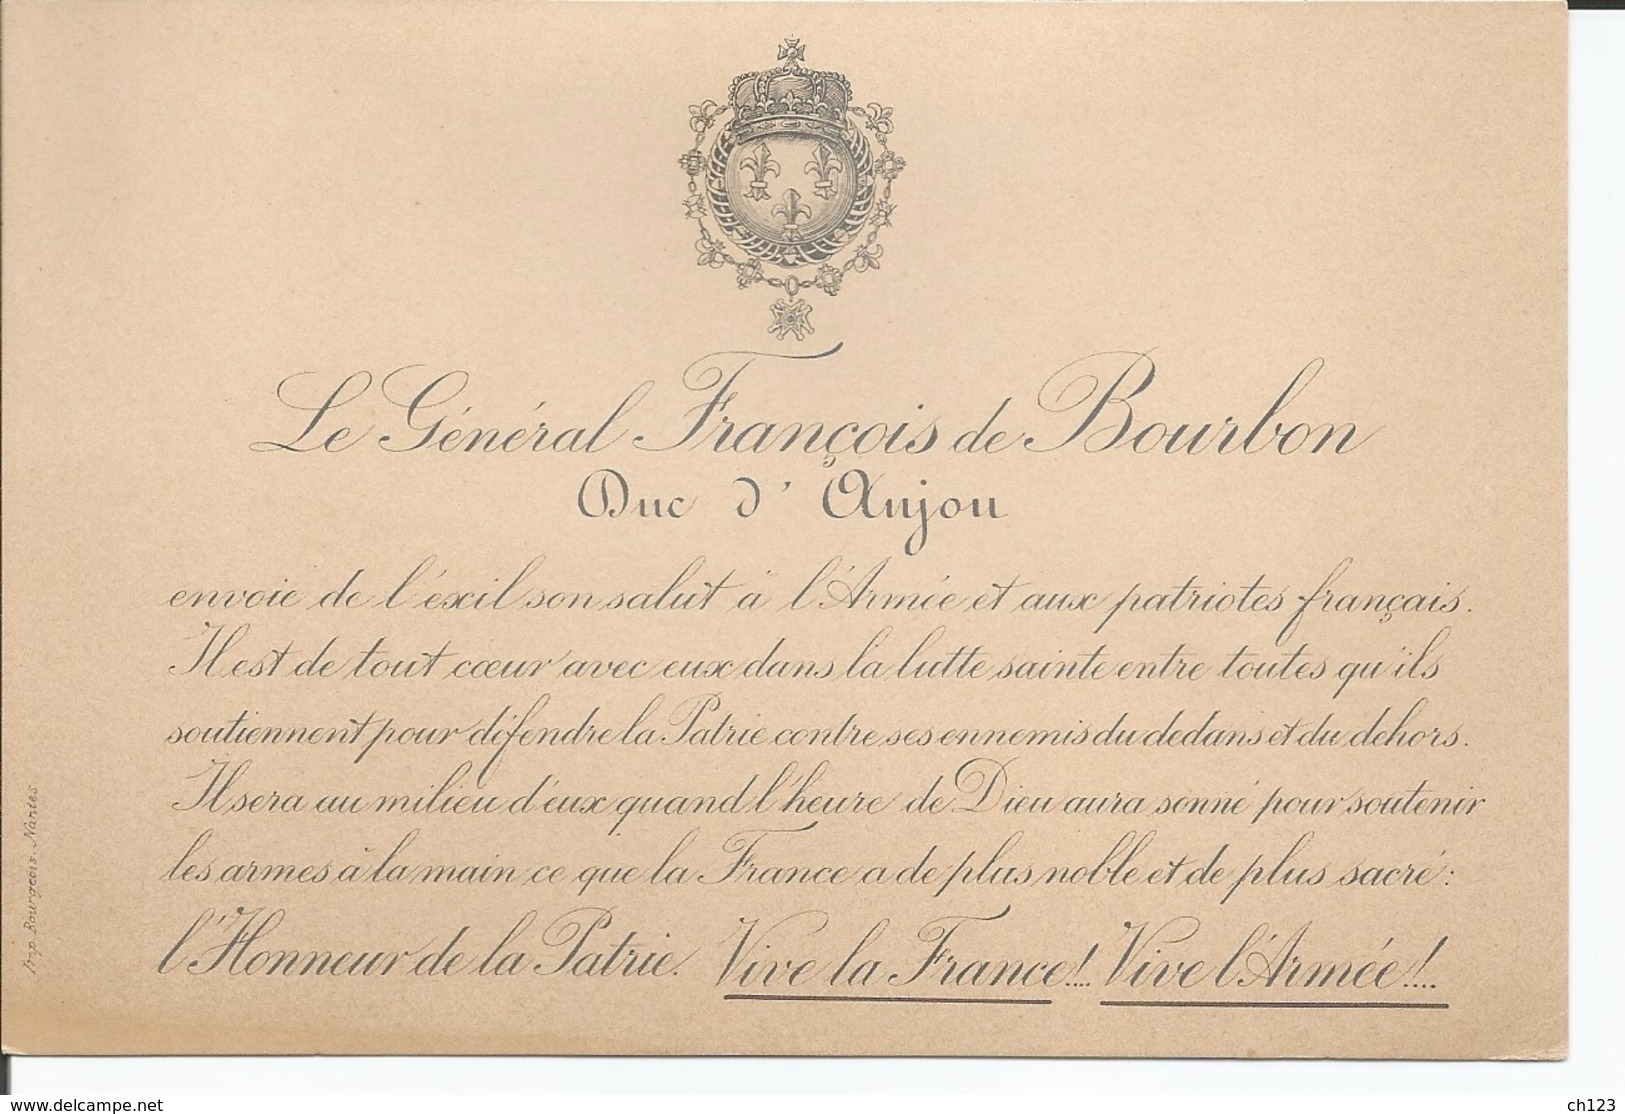 Le Général François de Bourbon
Duc d'Anjou
envoie de l'éxil son salut à l'Armée et aux patriotes français.
Il est de tout cœur avec eux dans la lutte sainte entre toutes qu'ils
soutiennent pour défendre la Patrie contre ses ennemis du dedans et du dehors.
Il sera au milieu d'eux quand l'heure de Dieu aura sonné pour soutenir
les armes à la main ce que la France a de plus noble et de plus sacré :
l'Honneur de la Patrie. Vive la France!... Vive l'Armée!...
Imp. Bourgeois. Nantes
www.delcampe.net
ch123